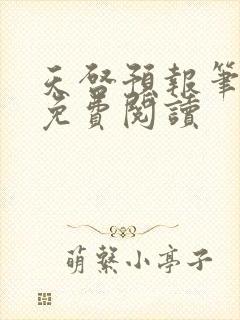 天啓預報筆
免費閱讀
萌繫小亭子